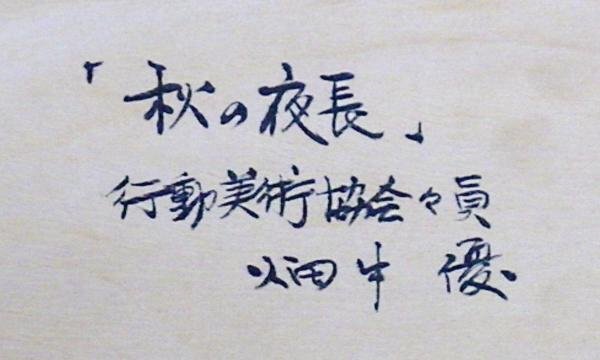 「秋の夜長」
行動美術協会々員
畑中 優